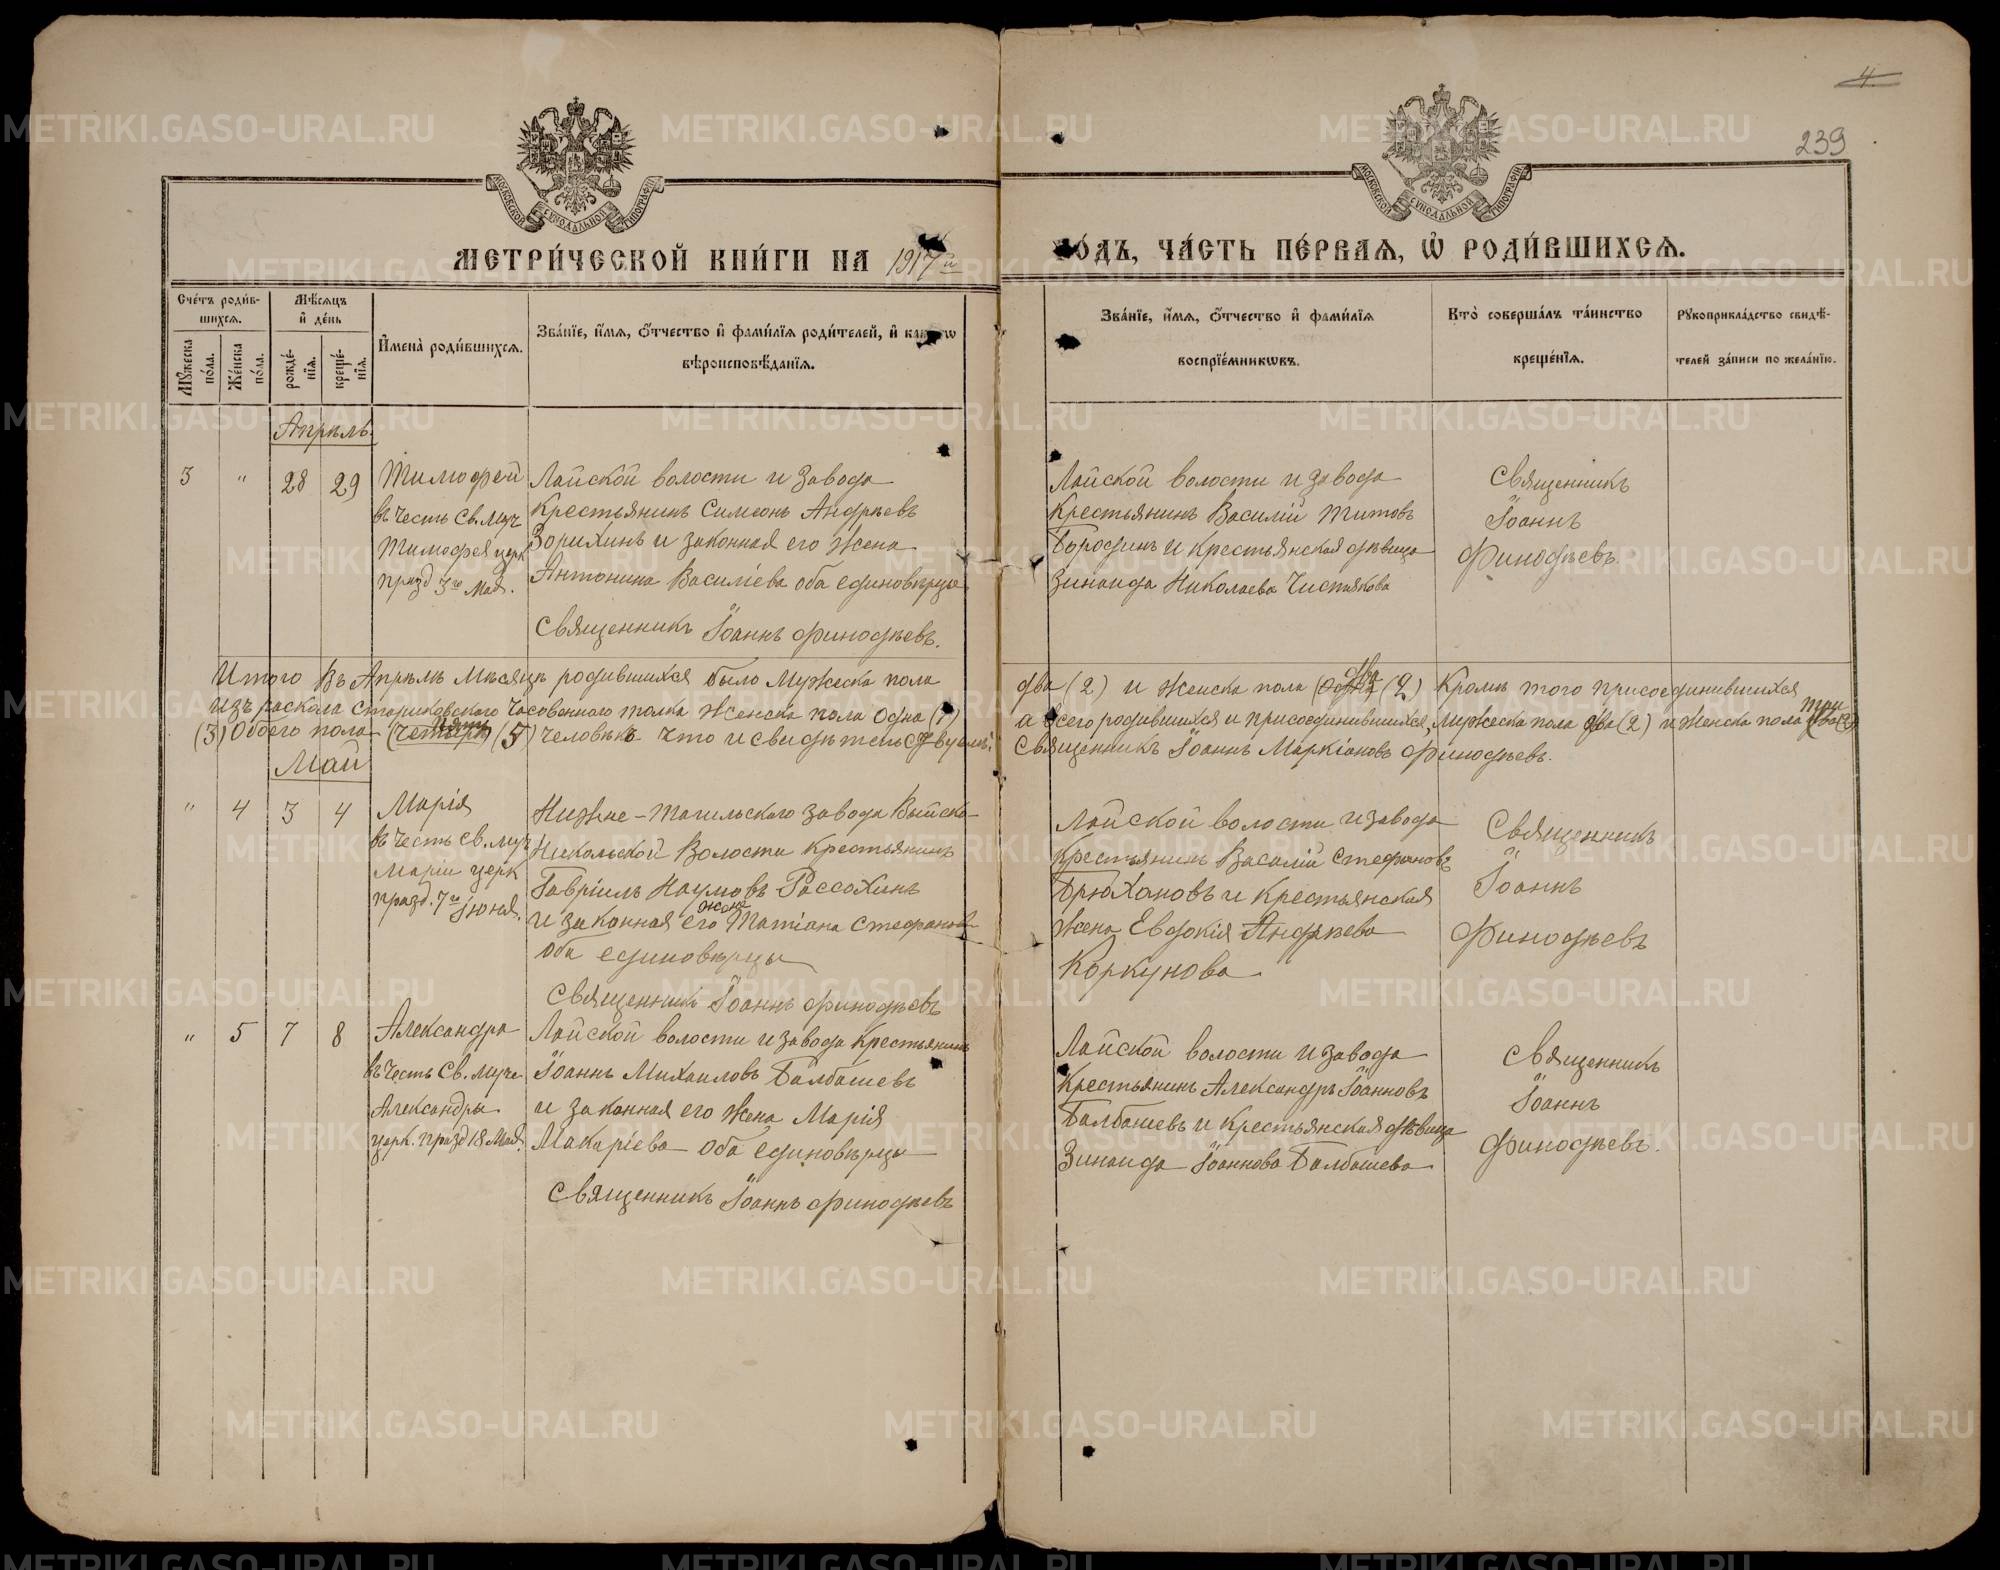 4
239
МОСКОВСКОЙ СѴНОДАЛЬНОЙ ТИПОГРАФІИ
МОСКОВСКОЙ СѴНОДАЛЬНОЙ ТИПОГРАФІИ
МЕТРИ́ЧЕСКОЙ КНИ́ГИ НА 1917 й
ГО́ДЪ, ЧА́СТЬ ПЕ́РВАЯ, Ѡ҆ РОДИ́ВШИХСѦ.
Сче́тъ роди́в-
шихсѧ.
Мꙋ́жеска по́ла.
Же́нска по́ла.
Мѣ́сѧцъ
и҆ де́нь
рожде́-
нїѧ.
креще́-
нїѧ.
И҆мена̀ роди́вшихсѧ.
Зва́нїе, и҆́мѧ, ѻ҆́тчество и҆ фами́лїѧ роди́телей, и҆ како́гѡ
вѣроисповѣ́данїѧ.
Зва́нїе, и҆́мѧ, ѻ҆́тчество и҆ фами́лїѧ
воспрїе́мникѡвъ.
Кто̀ соверша́лъ та́инство
креще́нїѧ.
Рꙋкоприкла́дство свидѣ́-
телей за́писи по жела́нїю.
Апрѣль.
3 " 28 29
Тимофей
въ честь св. муч
Тимофея церк
празд 3го Мая.
Лайской волости и завода
Крестьянинъ Симеонъ Андрѣевъ
Зорихинъ и законная его жена
Антонина Василіева оба единовѣрцы
Священникъ Іоаннъ Финодѣевъ.
Лайской волости и завода
Крестьянинъ Василій Титовъ
Бородинъ и крестьянская дѣвица
Зинаида Николаева Чистякова
Священникъ
Іоаннъ
Финодѣевъ.
Итого Въ Апрѣлѣ Мѣсяцѣ родившихся было Мужеска пола
два (2) и женска пола два (2) Кромѣ того присоединившихся
изъ раскола Стариковскаго Часовеннаго толка Женска пола Одна (1)
а всего родившихся и присоединившихся, мужеска пола два (2) и женска пола три
(3) Обоего пола пять (5) человѣкъ что и свидѣтельствуемъ:
Священникъ Іоаннъ Маркіановъ Финодѣевъ.
Май
" 4 3 4
Марія
въ честь св. муч
Маріи церк
празд. 7го іюня.
Нижне-Тагильскаго завода Выйско-
Никольской Волости Крестьянинъ
Гавріилъ Наумовъ Рассохинъ
и законная его жена Татіана Стефанова
оба единовѣрцы
Священникъ Іоаннъ Финодѣевъ
Лайской волости и завода
Крестьянинъ Василій Стефановъ
Брюхановъ и крестьянская
жена Евдокія Андрѣева
Коркунова
Священникъ
Іоаннъ
Финодѣевъ
" 5 7 8
Александра
въ честь св. муче
Александры
церк. празд 18 Мая.
Лайской волости и завода Крестьянинъ
Іоаннъ Михаиловъ Балбашевъ
и законная его жена Марія
Макаріева оба единовѣрцы
Священникъ Іоаннъ Финодѣевъ
Лайской волости и завода
Крестьянинъ Александръ Іоанновъ
Балбашевъ и крестьянская дѣвица
Зинаида Іоаннова Балбашева
Священникъ
Іоаннъ
Финодѣевъ.